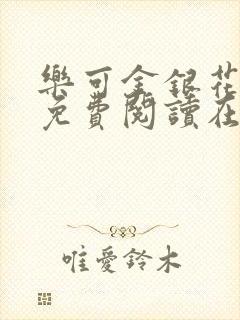 樂可金銀花
免費閱讀在
唯愛鈴木